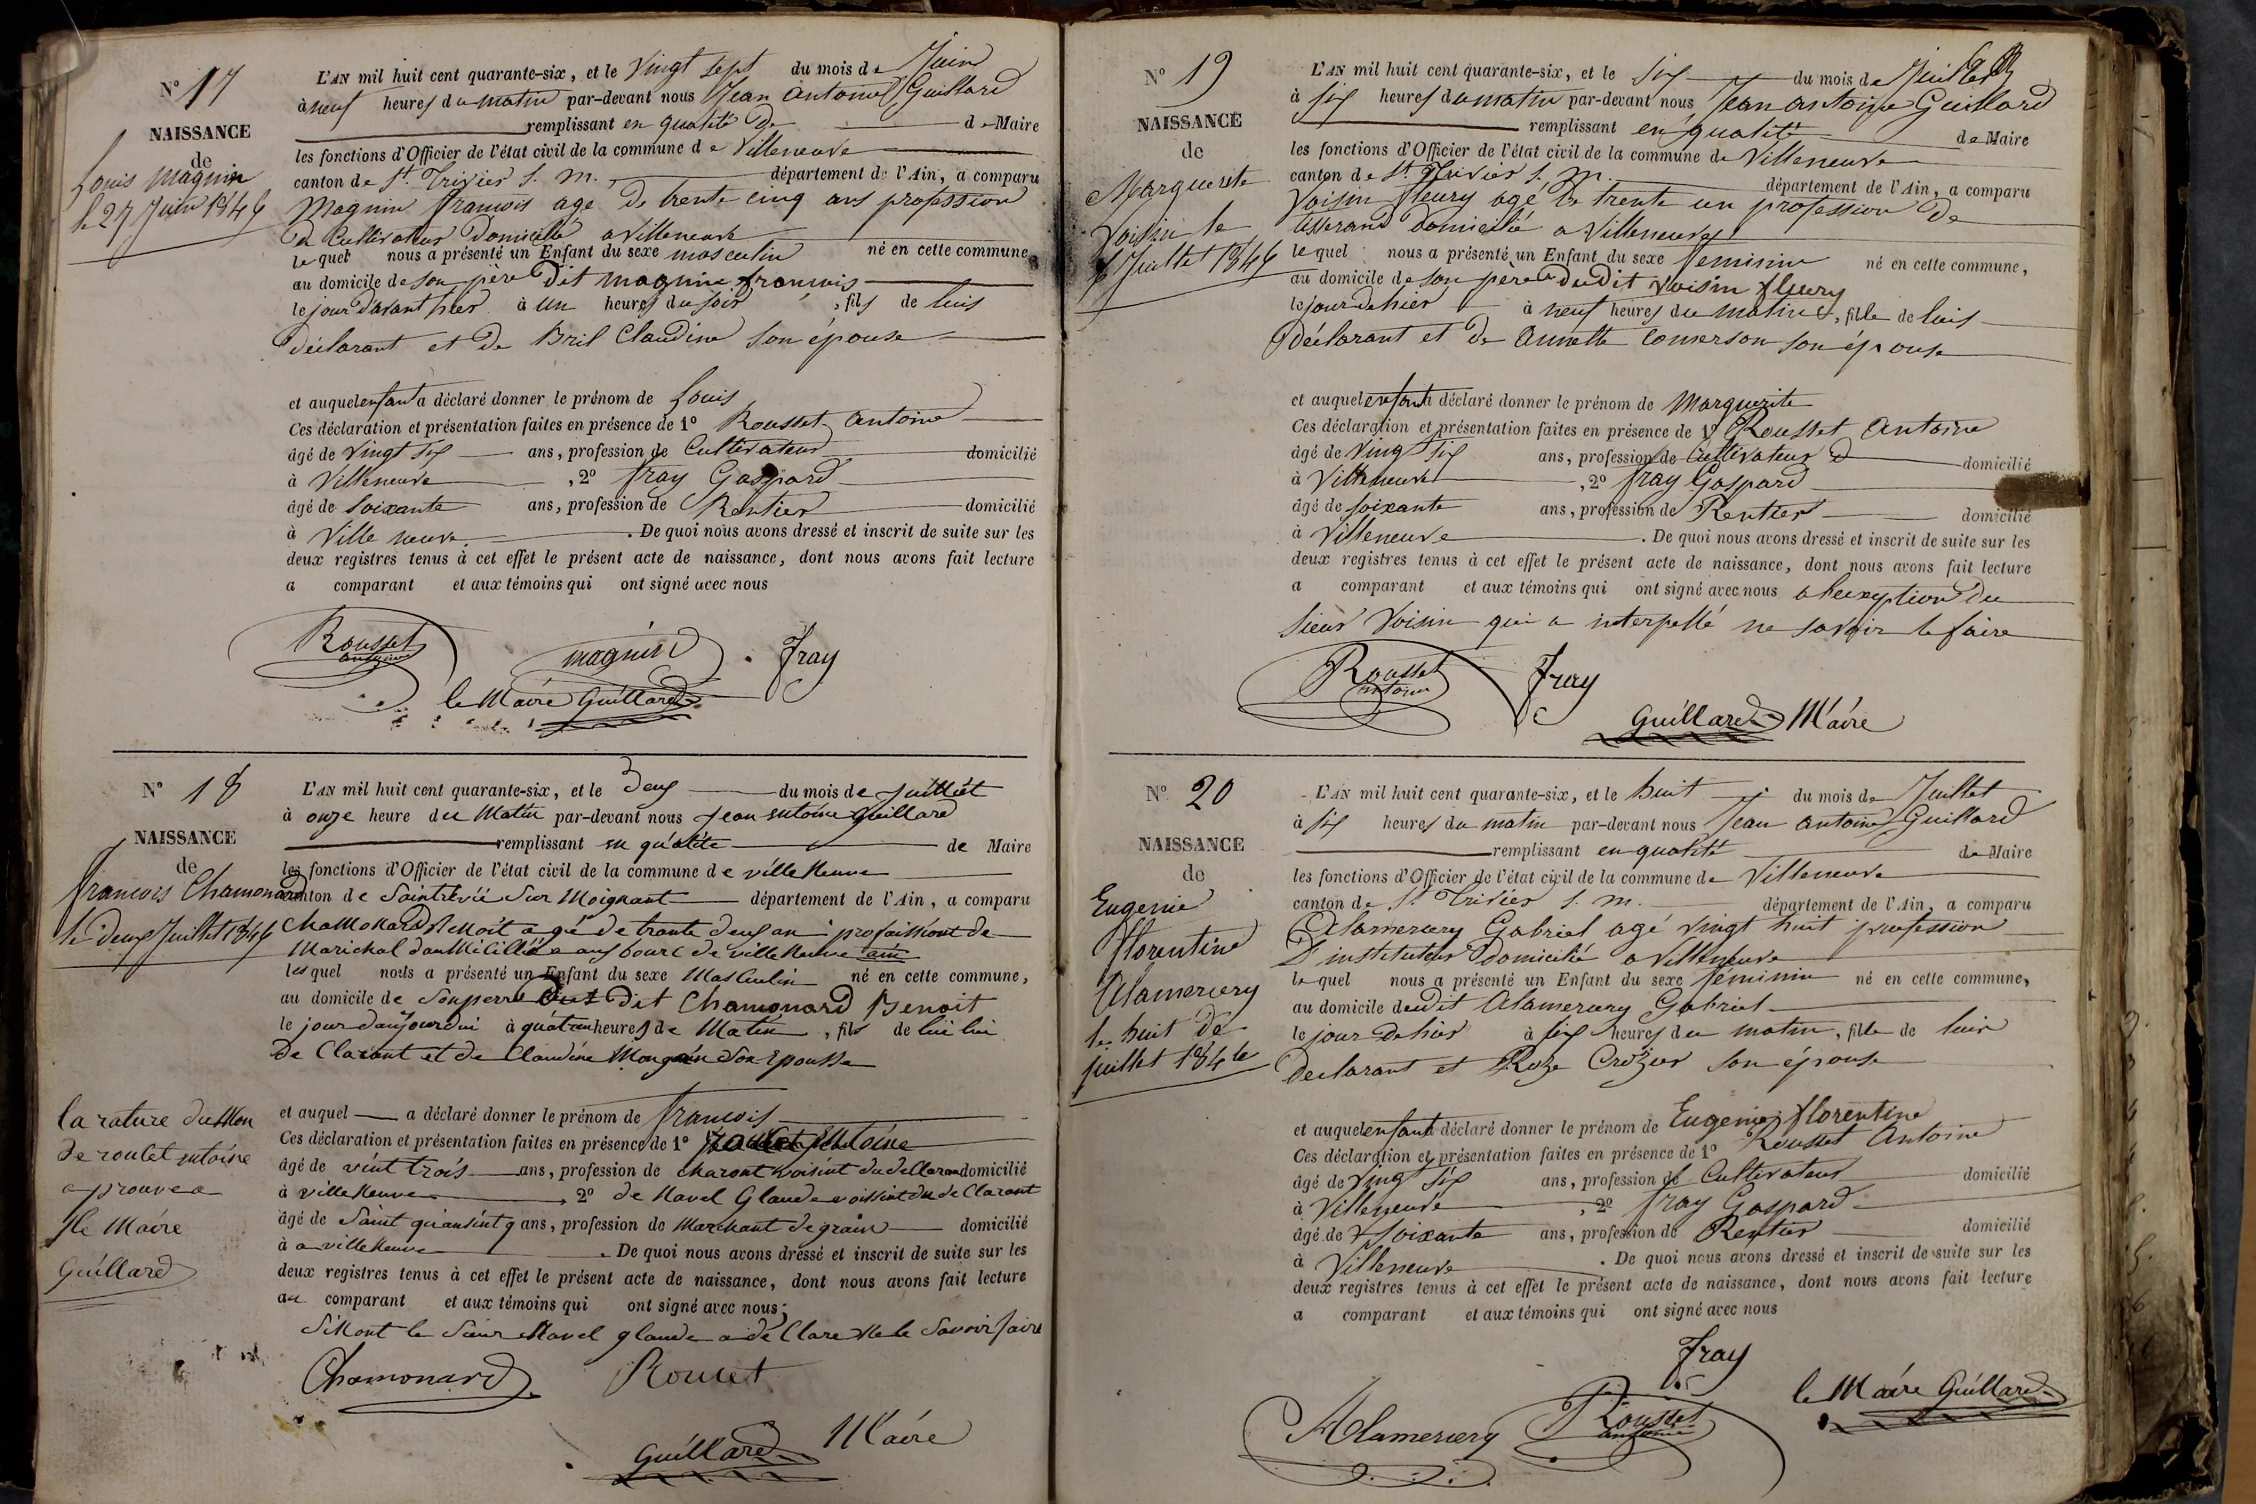 N° 17
NAISSANCE
de
Louis Magnin
le 27 Juin 1846
L'AN mil huit cent quarante-six, et le Vingt sept du mois de Juin
à neuf heures du matin par-devant nous Jean Antoine Guillard
remplissant en qualité de de Maire
les fonctions d'Officier de l'état civil de la commune de Villeneuve
canton de St. Trivier S. M. département de l'Ain, a comparu
Magnin francois age De trente cinq ans profession
de Cultivateur Domicilié a Villeneuve
lequel nous a présenté un Enfant du sexe masculin né en cette commune,
au domicile de son père Dit magnin francois
le jour D'avant hier à un heures du soir, fils de luis
déclarant et De Bril Claudine son épouse
et auquel enfant a déclaré donner le prénom de Louis
Ces déclaration et présentation faites en présence de 1° Rousset Antoine
âgé de vingt six ans, profession de Cultivateur domicilié
à Villeneuve, 2° fray Gaspard
âgé de soixante ans, profession de Rentier domicilié
à Ville neuve. De quoi nous avons dressé et inscrit de suite sur les
deux registres tenus à cet effet le présent acte de naissance, dont nous avons fait lecture
a comparant et aux témoins qui ont signé avec nous
Rousset antoine magnin fray
le Maire Guillard
N° 18
NAISSANCE
de
francois Chamonard
le deux Juillet 1846
la rature du Mon
de roulet antoine
aprouvea
Le Maire
Guillard
L'AN mil huit cent quarante-six, et le Deux du mois de juilliet
à onze heure du Matin par-devant nous jean antoine Guillard
remplissant en qualité de Maire
les fonctions d'Officier de l'état civil de la commune de ville Neuve
canton de Saintrevié Sur Moignant département de l'Ain, a comparu
chaMonard Benoit agé de trante deux an profaissiont de
Marichal daumicillié a aux bourc de ville Neuve
lesquel nous a présenté un Enfant du sexe Masculin né en cette commune,
au domicile de Sonperre Dit Chamonard Benoit
le jour daujourdui à quatre heures de Matin, fils de lui lui
De Clarant et de Claudine Mongoin Son Epousse
et auquel a déclaré donner le prénom de francois
Ces déclaration et présentation faites en présence de 1° Antoine
âgé de vint trois ans, profession de charont voisint du dellaran domicilié
à ville Neuve, 2° de Navel Glaude voissint du de Clarant
âgé de Saint quansint q ans, profession de Marchant de grain domicilié
à a ville Neuve. De quoi nous avons dressé et inscrit de suite sur les
deux registres tenus à cet effet le présent acte de naissance, dont nous avons fait lecture
au comparant et aux témoins qui ont signé avec nous;
SiNont le Sieur Navel glaude a dé Clare Ne le Savoir faire
Chamonard Roulet
Guillard Maire
N° 19
NAISSANCE
de
Marguerite
Voisin le
6 Juillet 1846
L'AN mil huit cent quarante-six, et le six du mois de Juillet
à six heures du matin par-devant nous Jean antoine Guillard
remplissant en qualité de Maire
les fonctions d'Officier de l'état civil de la commune de Villeneuve
canton de St. Trivier S. M. département de l'Ain, a comparu
Voisin fleury agé De trente un profession De
tisserand Domicilié a Villeneuve
lequel nous a présenté un Enfant du sexe feminin né en cette commune,
au domicile de son père du Dit Voisin fleury
le jour de hier à neuf heures du matin, fille de luis
Déclarant et De Annette Comerson son épouse
et auquel enfant a déclaré donner le prénom de Marguerite
Ces déclaration et présentation faites en présence de 1° Rousset Antoine
âgé de Vingt six ans, profession de Cultivateur D domicilié
à Villeneuve, 2° fray Gaspard
âgé de soixante ans, profession de Rentier domicilié
à Villeneuve. De quoi nous avons dressé et inscrit de suite sur les
deux registres tenus à cet effet le présent acte de naissance, dont nous avons fait lecture
a comparant et aux témoins qui ont signé avec nous a l'exception Du
sieur Voisin qui a interpellé ne savoir le faire
Rousset antoine fray
Guillard Maire
N° 20
NAISSANCE
de
Eugenie
florentine
Alamercery
le huit De
juillet 1846
L'AN mil huit cent quarante-six, et le huit du mois de Juillet
à six heures du matin par-devant nous Jean Antoine Guillard
remplissant en qualité de Maire
les fonctions d'Officier de l'état civil de la commune de Villeneuve
canton de St Trivier S. M. département de l'Ain, a comparu
Alamercery Gabriel agé vingt huit profession
D'instituteur Domicilié a Villeneuve
lequel nous a présenté un Enfant du sexe féminin né en cette commune,
au domicile deudit Alamercery Gabriel
le jour De hier à six heures du matin, fille de luis
Declarant et Roze Crozier son épouse
et auquel enfant a déclaré donner le prénom de Eugenie florentine
Ces déclaration et présentation faites en présence de 1° Rousset Antoine
âgé de Vingt six ans, profession de Cultivateur domicilié
à Villeneuve, 2° fray Gaspard
âgé de soixante ans, profession de Rentier domicilié
à Villeneuve. De quoi nous avons dressé et inscrit de suite sur les
deux registres tenus à cet effet le présent acte de naissance, dont nous avons fait lecture
a comparant et aux témoins qui ont signé avec nous
fray
Alamercery Rousset antoine le Maire Guillard